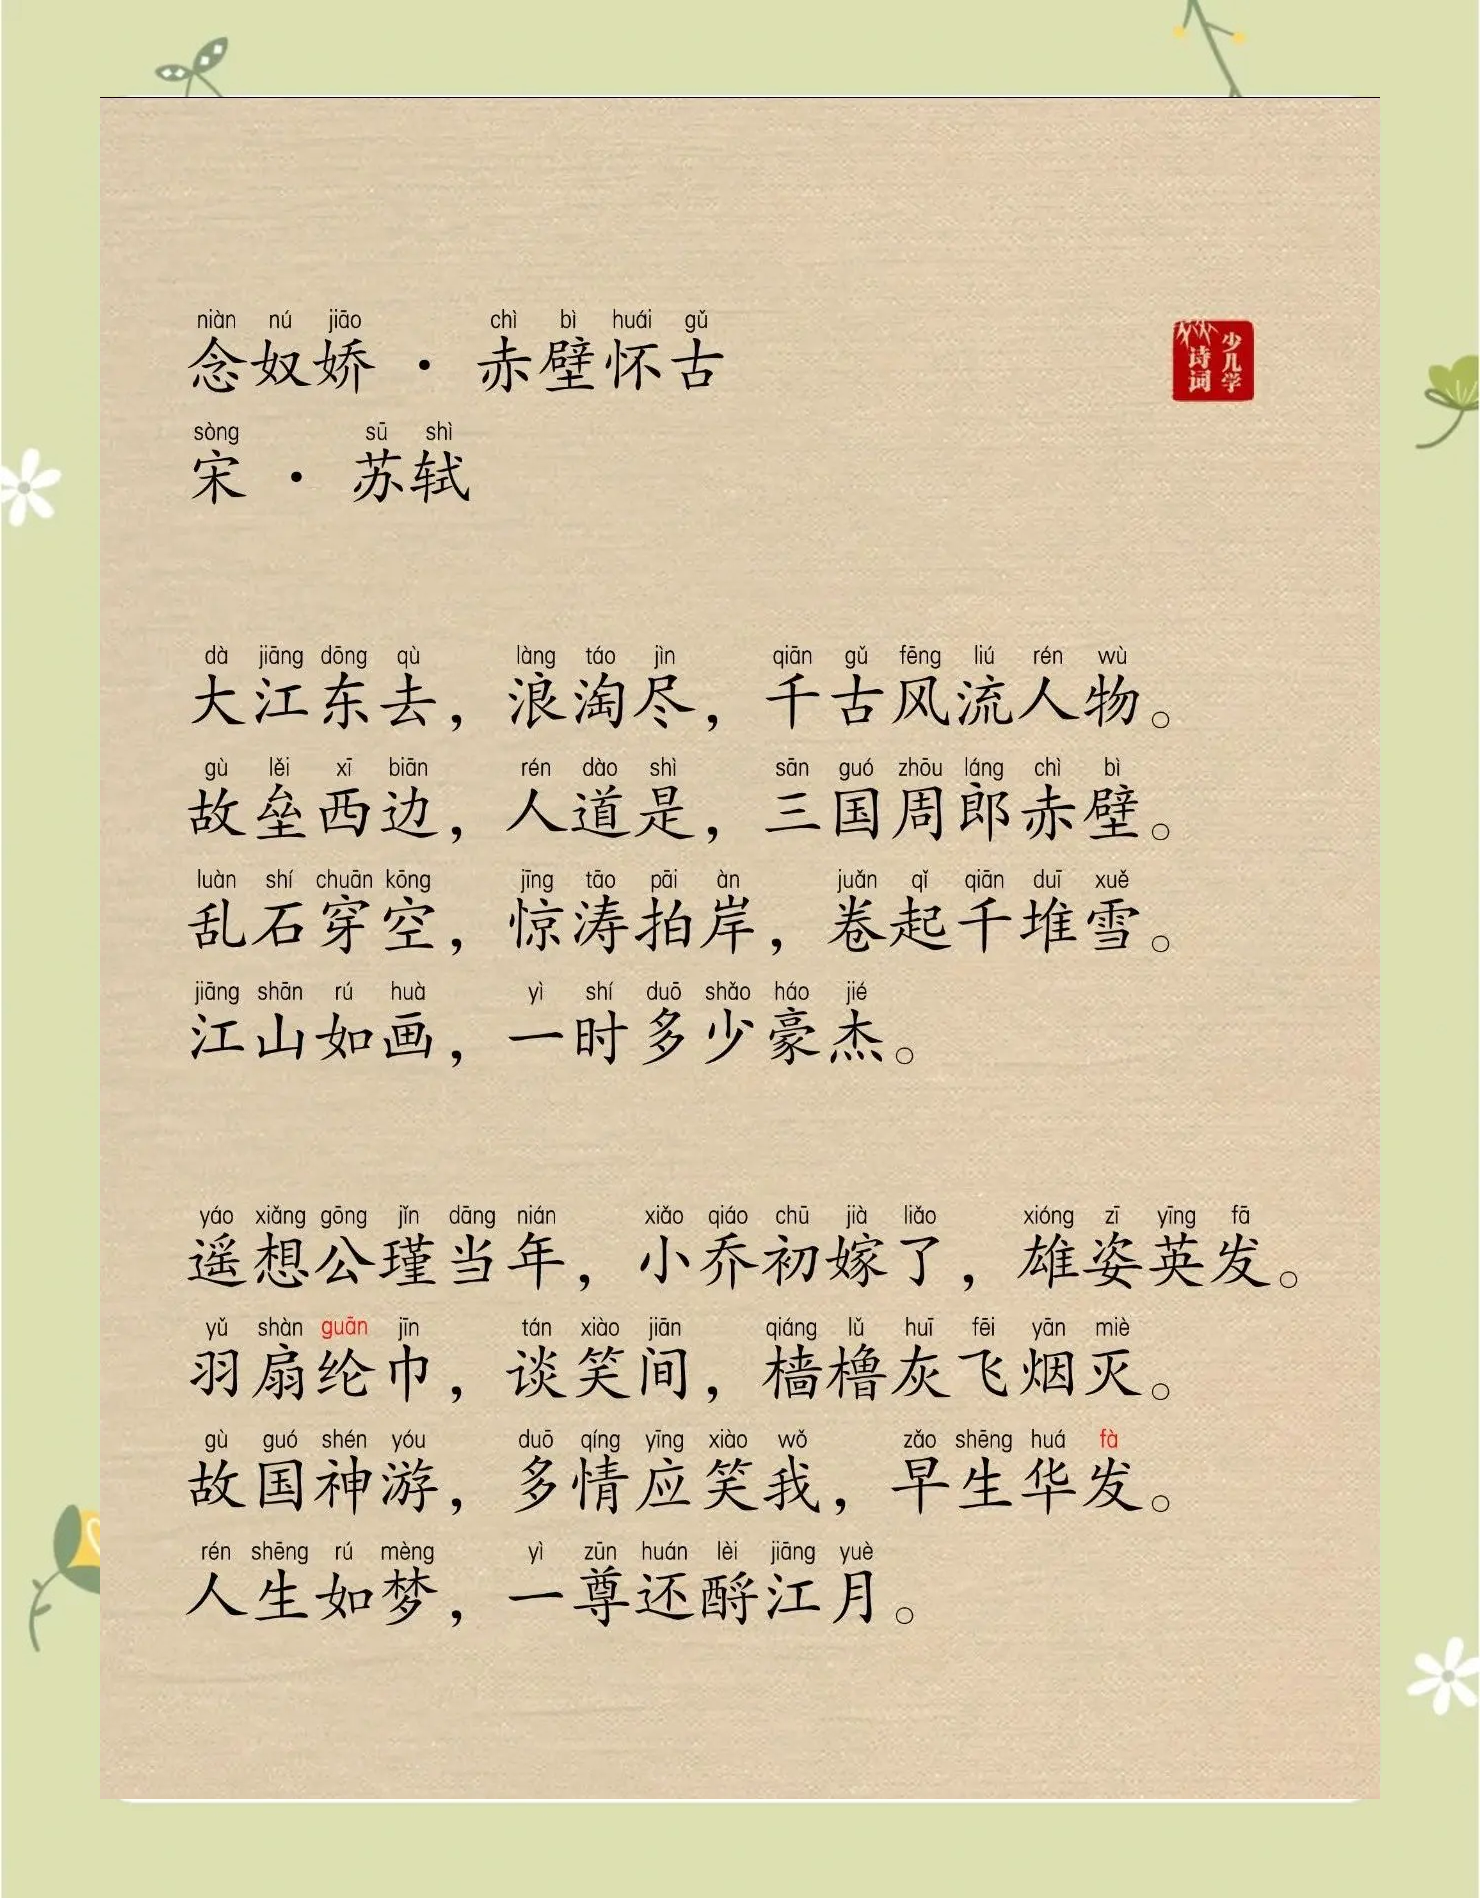 niàn nú jiāo chì bì huái gǔ
念奴娇 · 赤壁怀古
少儿学
诗词
sòng sū shì
宋 · 苏轼
dà jiāng dōng qù làng táo jìn qiān gǔ fēng liú rén wù
大江东去，浪淘尽，千古风流人物。
gù lěi xī biān rén dào shì sān guó zhōu láng chì bì
故垒西边，人道是，三国周郎赤壁。
luàn shí chuān kōng jīng tāo pāi àn juǎn qǐ qiān duī xuě
乱石穿空，惊涛拍岸，卷起千堆雪。
jiāng shān rú huà yì shí duō shǎo háo jié
江山如画，一时多少豪杰。
yáo xiǎng gōng jǐn dāng nián xiǎo qiáo chū jià liǎo xióng zī yīng fā
遥想公瑾当年，小乔初嫁了，雄姿英发。
yǔ shàn guān jīn tán xiào jiān qiáng lǔ huī fēi yān miè
羽扇纶巾，谈笑间，樯橹灰飞烟灭。
gù guó shén yóu duō qíng yīng xiào wǒ zǎo shēng huá fà
故国神游，多情应笑我，早生华发。
rén shēng rú mèng yì zūn huán lèi jiāng yuè
人生如梦，一尊还酹江月。